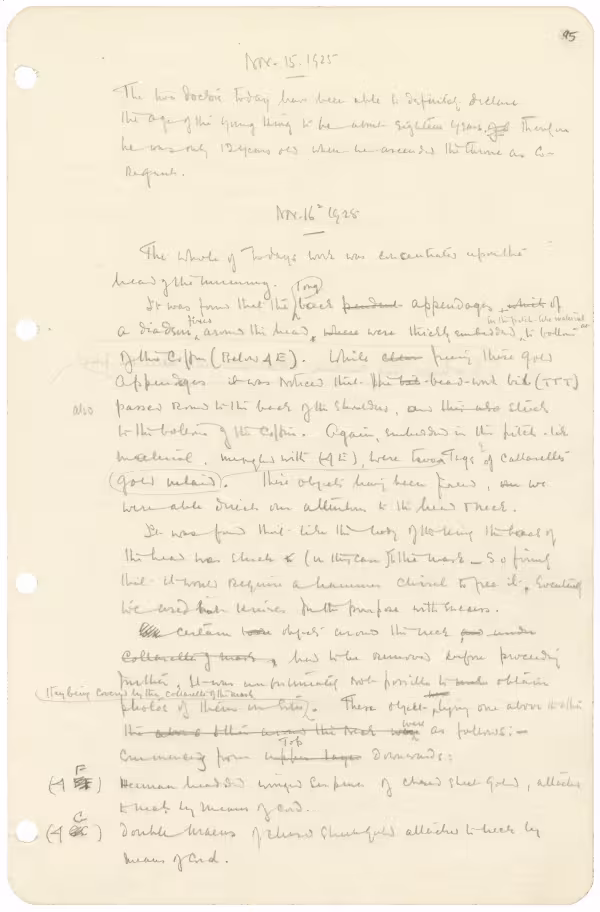 95
Nov. 15. 1925
The two Doctors today have been able to definitely declare
the age of the young King to be about eighteen years. Therefore
he was only 12 years old when he ascended the throne as Co-
Regent.
Nov. 16 1925
The whole of today's work was concentrated upon the
head of the mummy.
long
It was found that the back pendent appendages, which of
fixed in the pitch-like material
a diadem, around the head, where were thickly embedded, to bottom
of the Coffin (Below 4E). While clean freeing these gold
Appendages it was noticed that the bead-work bib (TTT)
also passed round to the back of the shoulders, and this also stuck
to the bottom of the Coffin. Again, embedded in the pitch-like
material, mingled with (4E), were two Tags of collarettes
(gold inlaid). These objects having been freed, we
were able direct our attention to the head & neck.
It was found that like the body of the King the back of
the head was stuck (in this case to the mask - So firmly
that it would require a hammer chisel to free it. Eventually
we used hot knives for the purpose with success.
Certain objects around the neck, and under
Collarette of mask, had to be removed before proceeding
further, it was unfortunately not possible to obtain
they being covered by the collarette of the mask
photos of them in situ. These objects lying one above the other
the above other around the neck were as follows:-
Top
Commencing from upper layer Downwards:
F
(4 ) Human headed winged Serpent of chased sheet Gold, attached
to neck by means of cord.
G
(4 ) Double Uraeus of chased sheet gold attached to neck by
means of Cord.